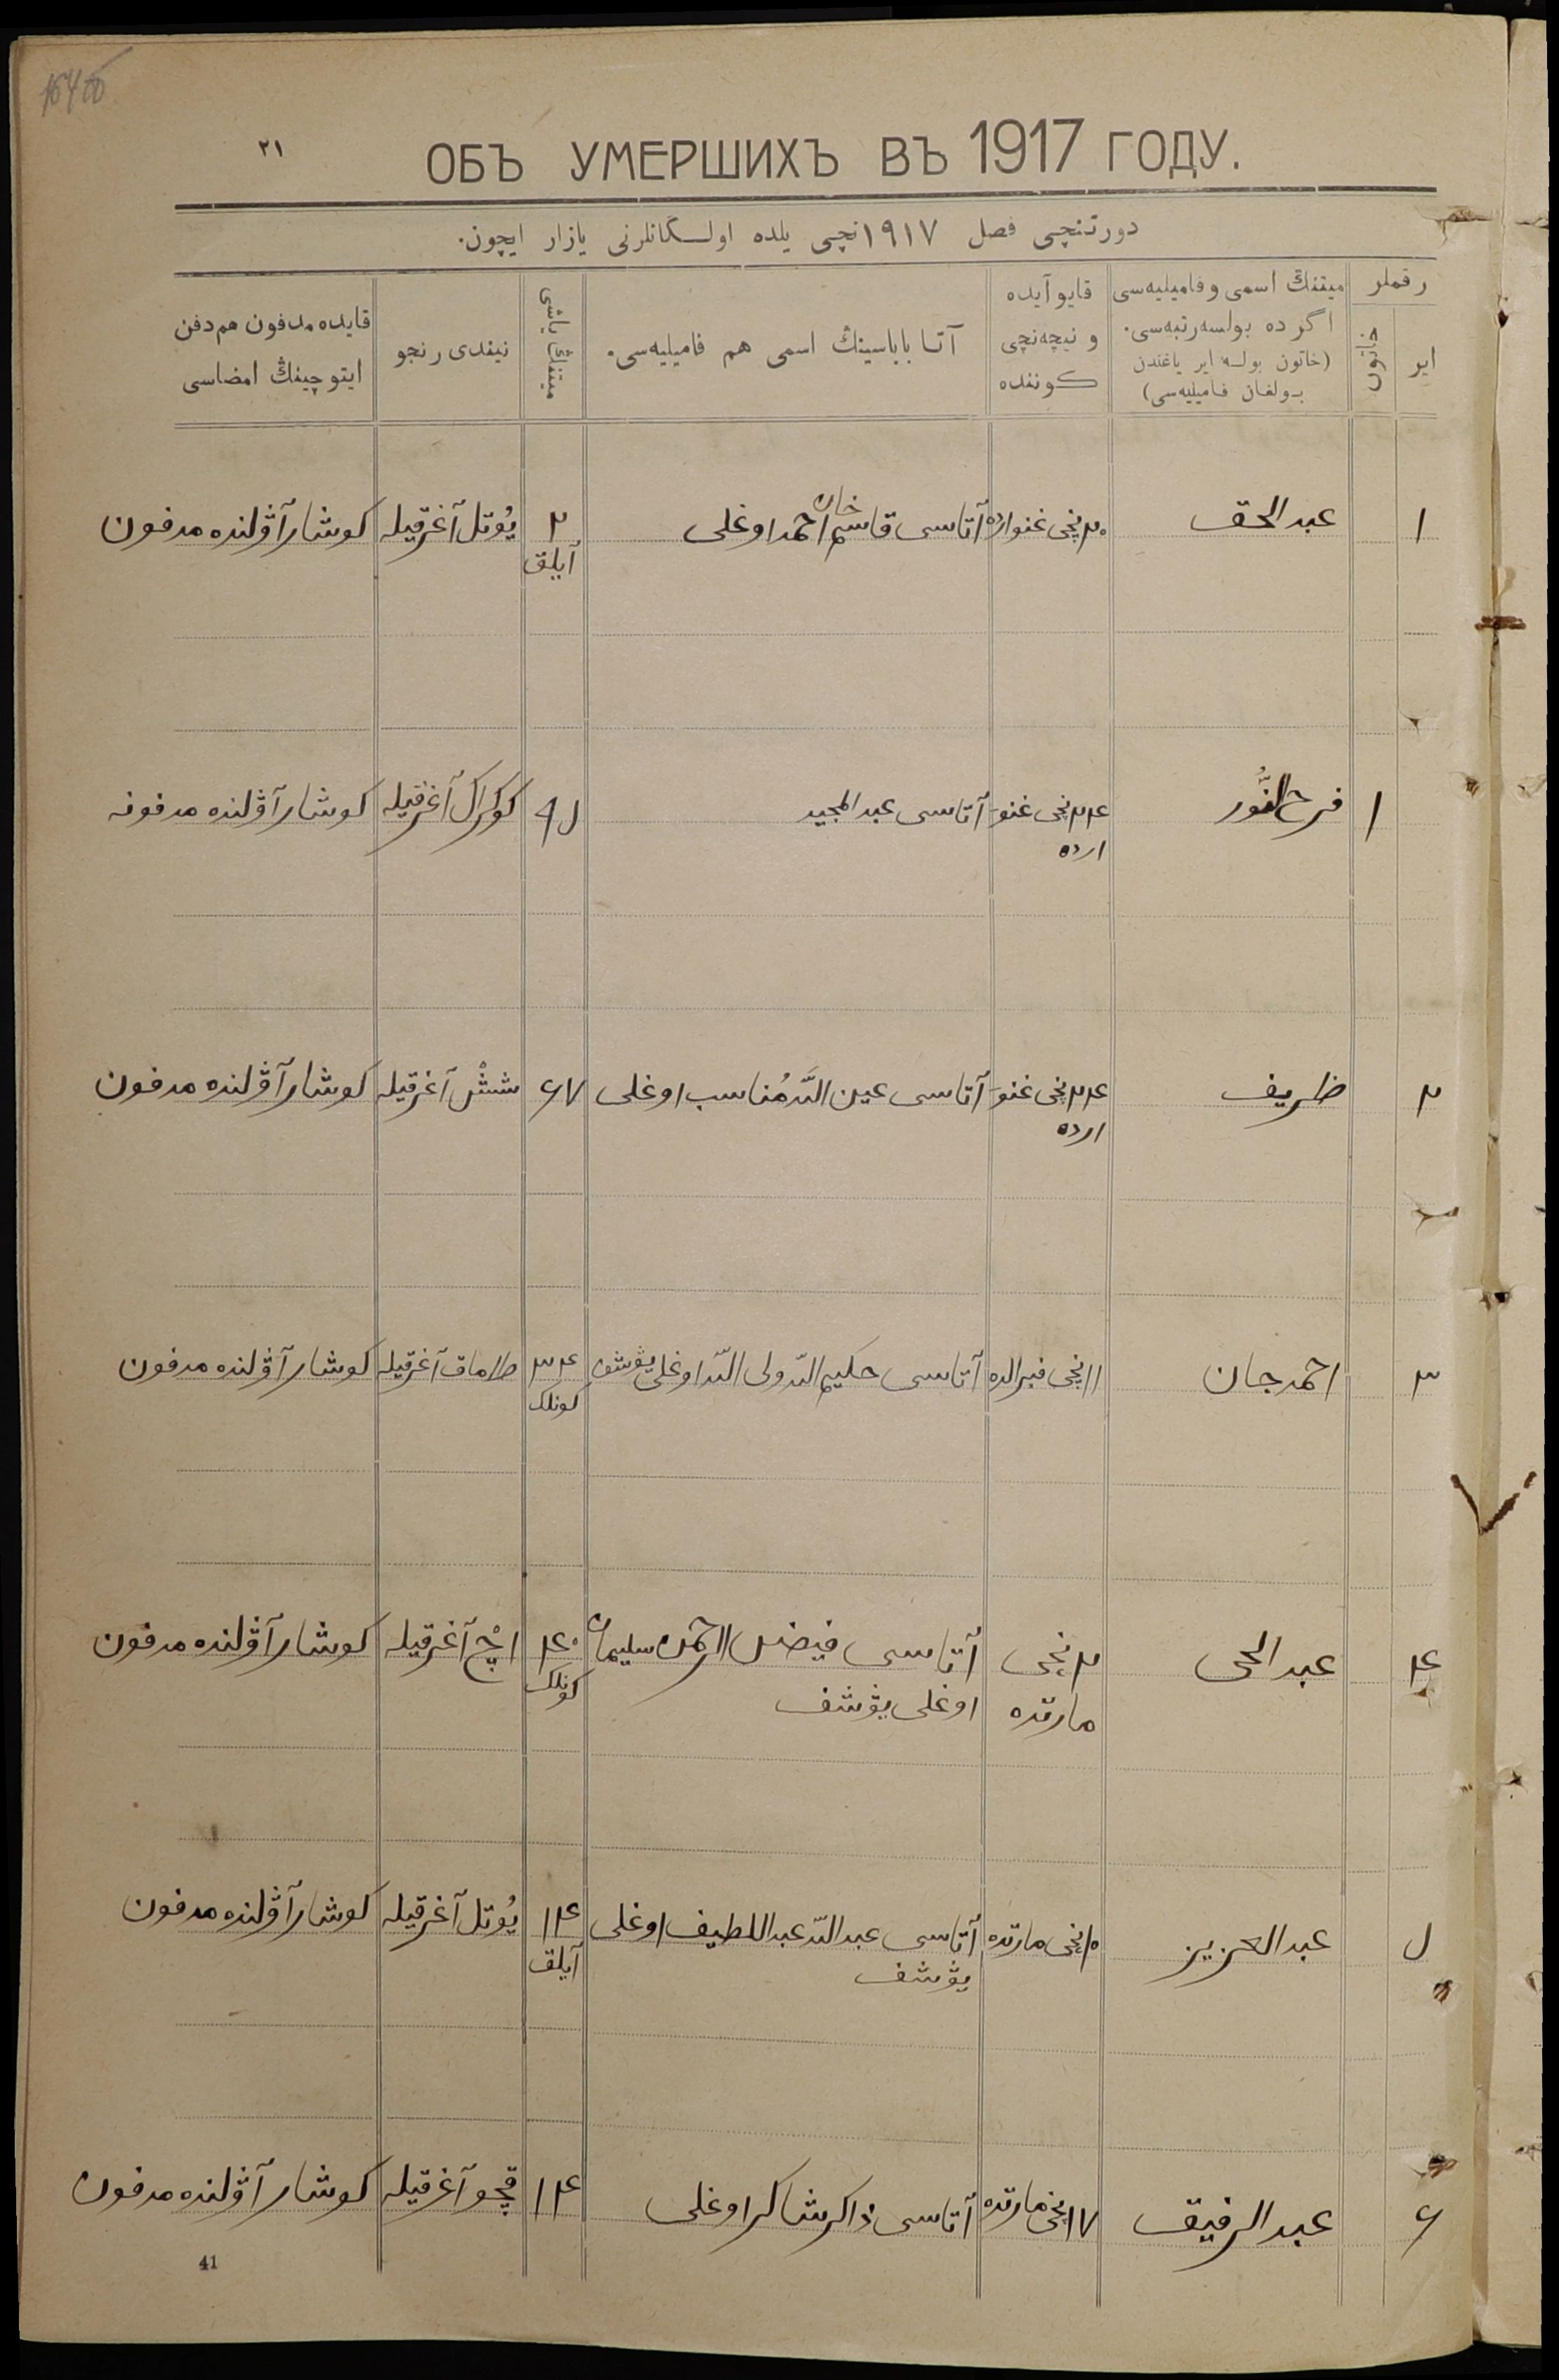 ٢١
ОБЪ УМЕРШИХЪ ВЪ 1917 ГОДУ.
دورتنچی فصل ١٩١٧ نچی یلده اولسکانلرنی یازار ایچون.
رقملر
ایر
خاتون
میتنڭ اسمی و فامیلیه‌سی
اگر ده بولسه رتبه‌سی.
(خاتون بولسه ایر یاغندن
بولغان فامیلیه‌سی)
قایو آیده
و نیچه‌نچی
کوننده
آتا باباسینڭ اسمی هم فامیلیه‌سی.
میتنڭ یاشی
نیندی رنجو
قایده مدفون هم دفن
ایتوچینڭ امضاسی
١ عبد الحق ٢٠ نچی غنوارده آتاسی قاسم خان احمد اوغلی ٢ یُوتل آغرقیله کوشار آۋلنده مدفون
آیلق
١ فرح النُّور ٢٤ نچی غنو- آتاسی عبد المجید ٩٥ کوکراک آغرقیله کوشار آۋلنده مدفونه
ارده
٢ ظریف ٢٤ نچی غنو- آتاسی عین اللّه مُناسب اوغلی ٦٧ ششْ آغرقیله کوشار آۋلنده مدفون
ارده
٣ احمد جان ١١ نچی فبرالده آتاسی حکیم اللّه ولی اللّه اوغلی یۋشف ٣٤ طاماق آغرقیله کوشار آۋلنده مدفون
کونلک
٤ عبد الحی ٢ نچی آتاسی فیض الرحمن سلیمان ٤٠ اچ آغرقیله کوشار آۋلنده مدفون
مارتده اوغلی یۋشف کونلک
٥ عبد العزیز ١٥ نچی مارتده آتاسی عبد اللّه عبد اللطیف اوغلی ١٤ یُوتل آغرقیله کوشار آۋلنده مدفون
یۋشف آیلق
٦ عبد الرفیق ١٧ نچی مارتده آتاسی ذاکر شاکر اوغلی ١٤ قچو آغرقیله کوشار آۋلنده مدفون
41